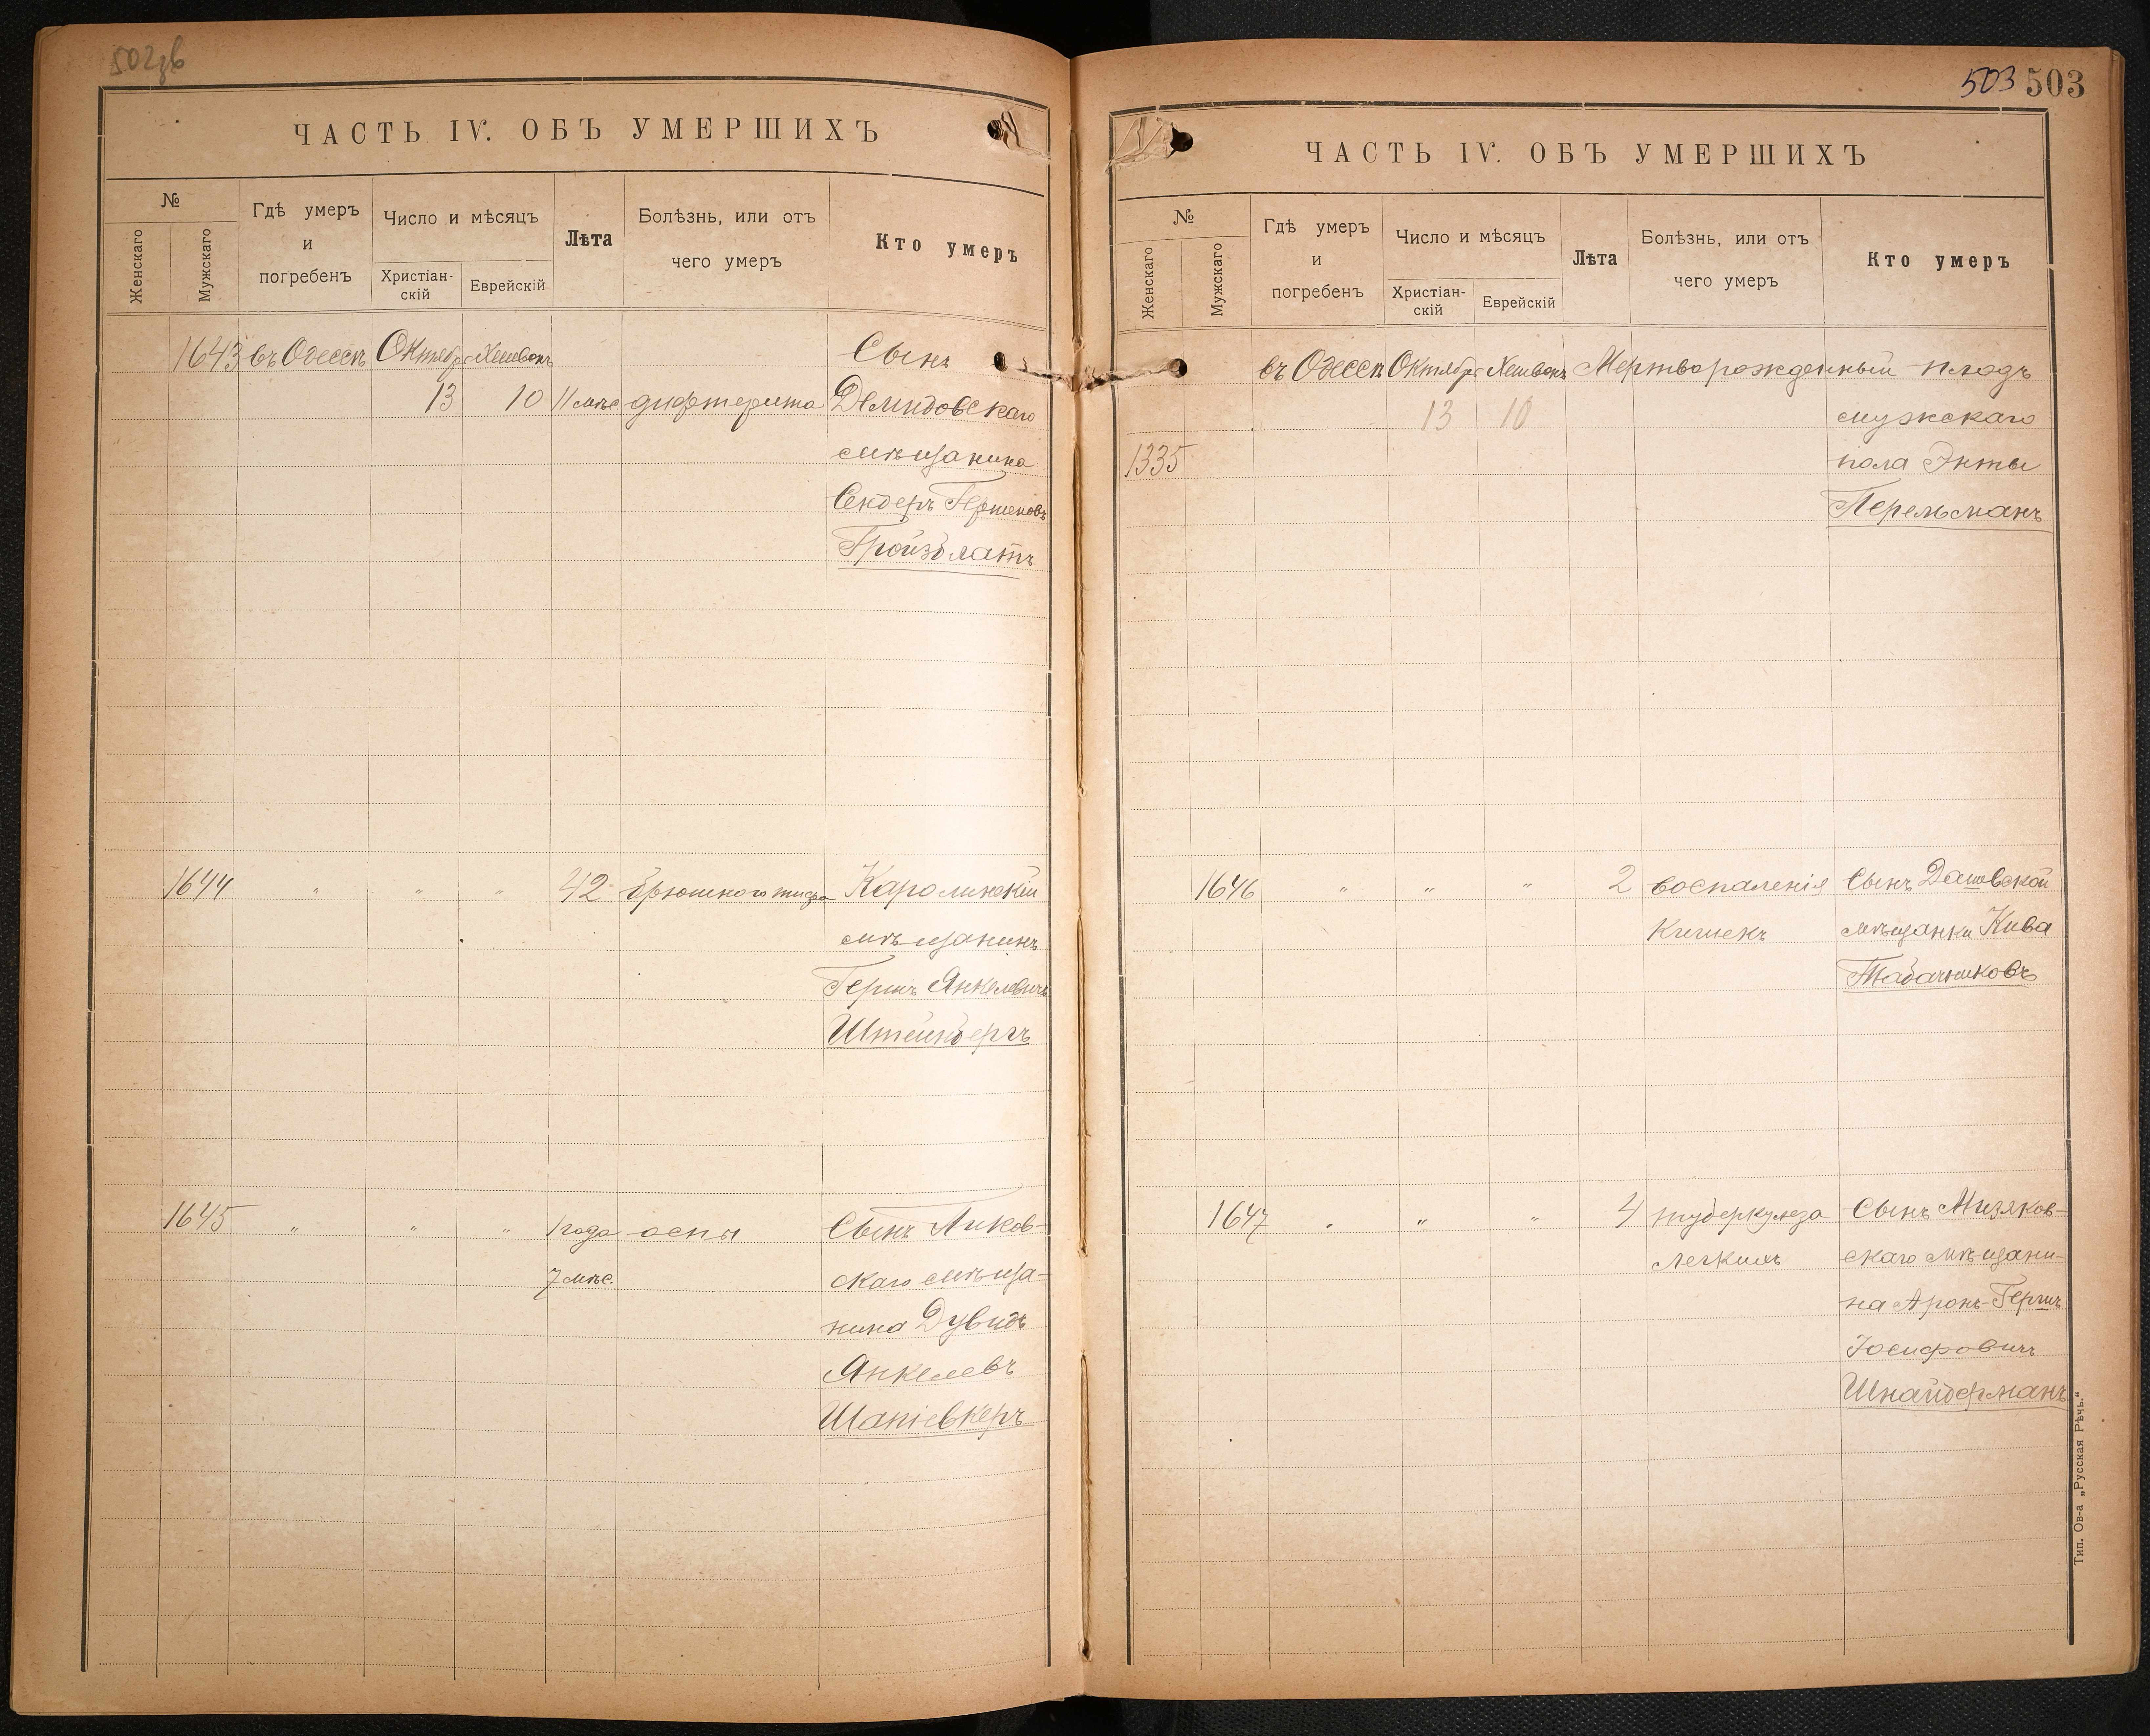 502 об
ЧАСТЬ IV. ОБЪ УМЕРШИХЪ
№
Женскаго
Мужскаго
Гдѣ умеръ
и
погребенъ
Число и мѣсяцъ
Христіан-
скій
Еврейскій
Лѣта
Болѣзнь, или отъ
чего умеръ
Кто умеръ
1643 въ Одессѣ Октября Хешвонъ Сынъ
13 10 11 мѣс дифтерита Демидовскаго
мѣщанина
Сендеръ Гершковъ
Гройзблатъ
1644 " " " 42 брюшного тифа Каролинскій
мѣщанинъ
Гершъ Янкелевичъ
Штейнбергъ
1645 " " " 1 года оспы Сынъ Ликов-
7 мѣс. скаго мѣща-
нина Дувидъ
Янкелевъ
Шапіевкеръ
503 503
ЧАСТЬ IV. ОБЪ УМЕРШИХЪ
№
Женскаго
Мужскаго
Гдѣ умеръ
и
погребенъ
Число и мѣсяцъ
Христіан-
скій
Еврейскій
Лѣта
Болѣзнь, или отъ
чего умеръ
Кто умеръ
въ Одессѣ Октября Хешвонъ Мертворожденный плодъ
13 10 мужскаго
1335 пола Энты
Перельманъ
1646 " " " 2 воспаленія Сынъ Дашевской
Кишекъ мѣщанки Кива
Табачниковъ
1647 " " " 4 туберкулеза Сынъ Мизяков-
легкихъ скаго мѣщани-
на Аронъ-Гершъ
Іосифовичъ
Шнайдерманъ
Тип. Ов-а „Русская Рѣчь."